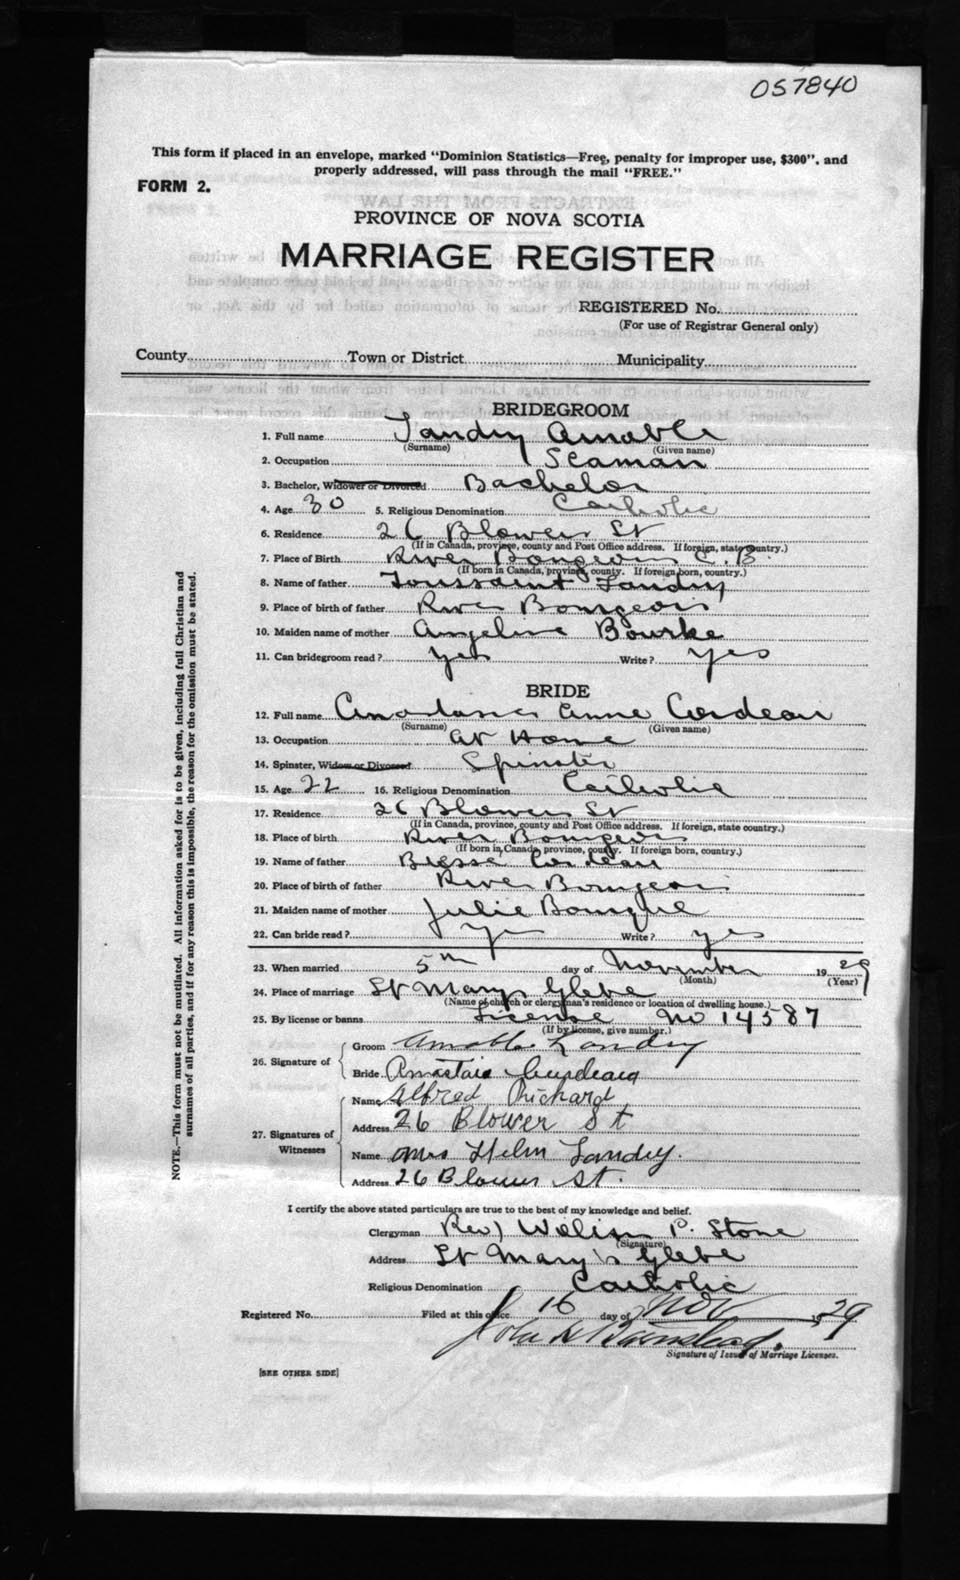 057840
This form if placed in an envelope, marked "Dominion Statistics—Free, penalty for improper use, $300", and
properly addressed, will pass through the mail "FREE."
FORM 2.
PROVINCE OF NOVA SCOTIA
MARRIAGE REGISTER
REGISTERED No.
(For use of Registrar General only)
County Town or District Municipality
BRIDEGROOM
1. Full name Landry Amable
(Surname) (Given name)
2. Occupation Seaman
3. Bachelor, Widower or Divorced Bachelor
4. Age 30 5. Religious Denomination Catholic
6. Residence 26 Blowers St
(If in Canada, province, county and Post Office address. If foreign, state country.)
7. Place of Birth River Bourgeois C.B.
(If born in Canada, province, county. If foreign born, country.)
8. Name of father Toussaint Landry
9. Place of birth of father River Bourgeois
10. Maiden name of mother Angeline Bourke
11. Can bridegroom read? yes Write? yes
BRIDE
12. Full name Anne
(Surname) (Given name)
13. Occupation at Home
14. Spinster, Widow or Divorced Spinster
15. Age 22 16. Religious Denomination Catholic
17. Residence 26 Blowers St
(If in Canada, province, county and Post Office address. If foreign, state country.)
18. Place of birth River Bourgeois
(If born in Canada, province, county. If foreign born, country.)
19. Name of father
20. Place of birth of father River Bourgeois
21. Maiden name of mother Julie
22. Can bride read? Yes Write? yes
23. When married 5th day of November 1929
(Month) (Year)
24. Place of marriage St Marys Glebe
(Name of church or clergyman's residence or location of dwelling house.)
25. By license or banns License No 14587
(If by license, give number.)
26. Signature of Groom Amable Landry
Bride
27. Signatures of Witnesses Name Alfred Richard
Address 26 Blower St
Name Mrs Landry.
Address 26 Blower St.
I certify the above stated particulars are true to the best of my knowledge and belief.
Clergyman Rev) William P. Stone
(Signature)
Address St Mary's Glebe
Religious Denomination Catholic
Registered No. Filed at this office 16 day of Nov 1929
John Barnstead.
Signature of Issuer of Marriage Licenses.
[SEE OTHER SIDE]
NOTE.—This form must not be mutilated. All information asked for is to be given, including full Christian and
surnames of all parties, and if for any reason this is impossible, the reason for the omission must be stated.